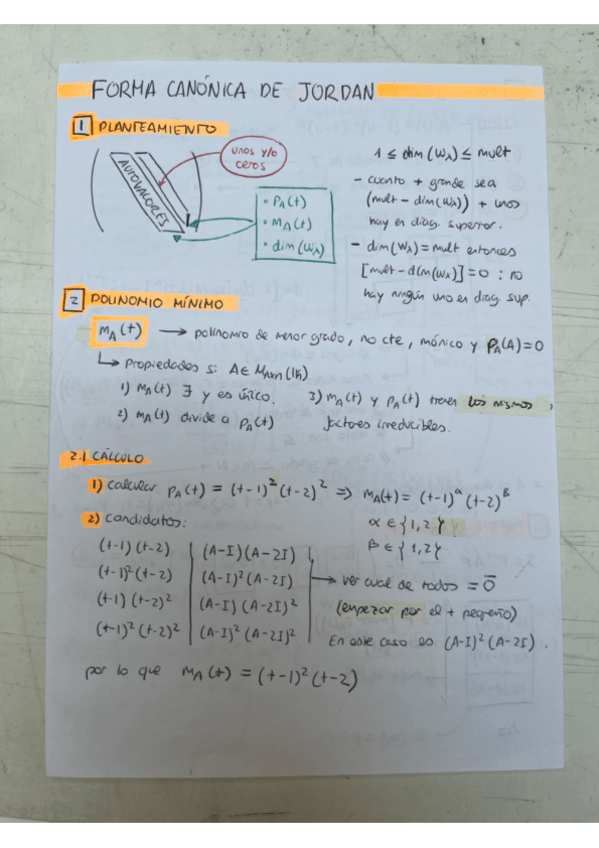 FORMA CANÓNICA DE JORDAN
1 PLANTEAMIENTO
AUTOVALORES
unos y/o
ceros
• PA(t)
• MA(t)
• dim(Wλ)
1 ≤ dim(Wλ) ≤ mult
- cuanto + grande sea
(mult - dim(Wλ)) + unos
hay en diag. superior.
- dim(Wλ) = mult entonces
[mult - dim(Wλ)] = 0 : no
hay ningún uno en diag sup.
2 POLINOMIO MÍNIMO
mA(t) → polinomio de menor grado, no cte, mónico y PA(A)=0
↳ propiedades si A∈ Mnxn(lK)
1) MA(t) ∃ y es único.
2) MA(t) divide a PA(t)
3) MA(t) y PA(t) tienen los mismos
factores irreducibles.
2.1 CÁLCULO
1) calcular PA(t) = (t-1)²(t-2)² ⇒ MA(t) = (t-1)^α (t-2)^β
α ∈ {1,2} y
β ∈ {1,2}
2) candidatos:
(t-1)(t-2) | (A-I)(A-2I)
(t-1)²(t-2) | (A-I)²(A-2I)
(t-1)(t-2)² | (A-I)(A-2I)²
(t-1)²(t-2)² | (A-I)²(A-2I)²
→ ver cual de todos = 0̄
(empezar por el + pequeño)
En este caso es (A-I)²(A-2I).
por lo que MA(t) = (t-1)²(t-2)